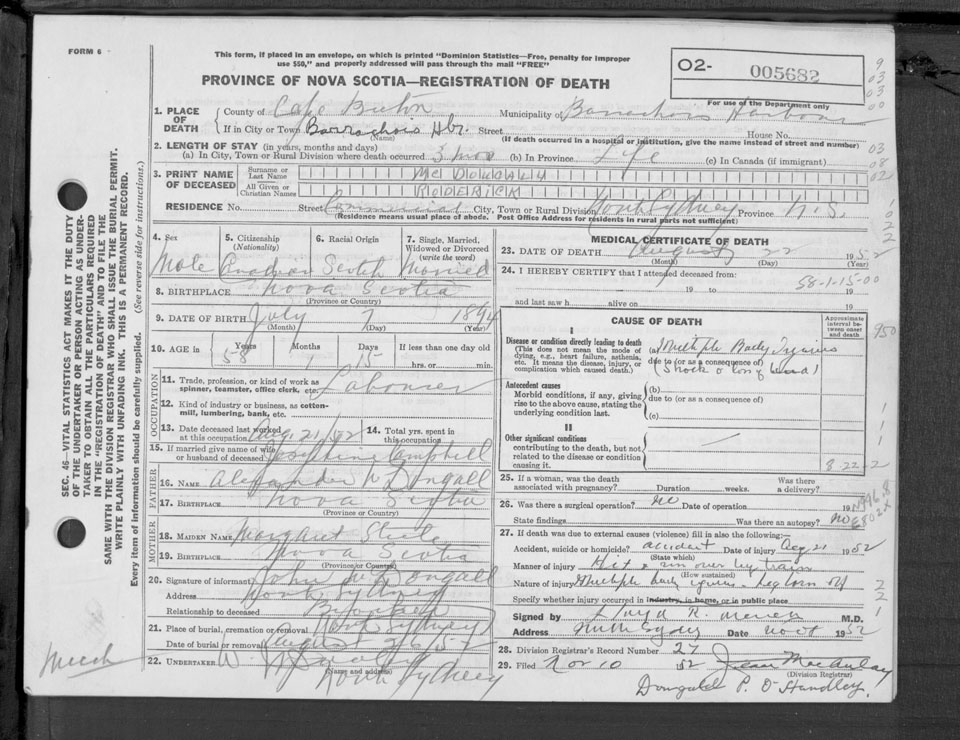 FORM 6
This form, if placed in an envelope, on which is printed "Dominion Statistics—Free, penalty for improper
use $50," and properly addressed will pass through the mail "FREE"
PROVINCE OF NOVA SCOTIA—REGISTRATION OF DEATH
O2- 005682
For use of the Department only
1. PLACE OF DEATH
County of Cape Breton Municipality of Barrachois Harbour
If in City or Town Barrachois Hbr. Street House No.
(Name) (If death occurred in a hospital or institution, give the name instead of street and number)
2. LENGTH OF STAY (in years, months and days)
(a) In City, Town or Rural Division where death occurred 3 mos (b) In Province Life (c) In Canada (if immigrant)
3. PRINT NAME OF DECEASED
Surname or Last Name McDOUGALL
All Given or Christian Names RODERICK
RESIDENCE No. Street Commercial City, Town or Rural Division North Sydney Province N.S.
(Residence means usual place of abode. Post Office Address for residents in rural parts not sufficient)
4. Sex Male
5. Citizenship (Nationality) Canadian
6. Racial Origin Scotch
7. Single, Married, Widowed or Divorced (write the word) Married
8. BIRTHPLACE Nova Scotia
(Province or Country)
9. DATE OF BIRTH July 7 1894
(Month) (Day) (Year)
10. AGE in Years 58 Months 1 Days 15 If less than one day old
hrs. or min.
OCCUPATION
11. Trade, profession, or kind of work as spinner, teamster, office clerk, etc. Labourer
12. Kind of industry or business, as cotten-mill, lumbering, bank, etc.
13. Date deceased last worked at this occupation Aug. 21/52
14. Total yrs. spent in this occupation
15. If married give name of wife or husband of deceased Josephine Campbell
FATHER
16. NAME Alexander McDougall
17. BIRTHPLACE Nova Scotia
(Province or Country)
MOTHER
18. MAIDEN NAME Margaret
19. BIRTHPLACE Nova Scotia
(Province or Country)
20. Signature of informant John McDougall
Address North Sydney
Relationship to deceased Brother
21. Place of burial, cremation or removal North Sydney
Date of burial or removal August 26/52
22. UNDERTAKER W. J.
North Sydney
(Name and address)
MEDICAL CERTIFICATE OF DEATH
23. DATE OF DEATH August 22 1952
(Month) (Day) (Year)
24. I HEREBY CERTIFY that I attended deceased from:
19 to 19
58-1-15-00
and last saw h alive on 19
CAUSE OF DEATH
Approximate interval between onset and death
I
Disease or condition directly leading to death
(This does not mean the mode of dying, e.g., heart failure, asthenia, etc. It means the disease, injury, or complication which caused death.)
(a) Multiple Body Injuries
due to (or as a consequence of)
(Shock & loss of blood)
Antecedent causes
Morbid conditions, if any, giving rise to the above cause, stating the underlying condition last.
(b)
due to (or as a consequence of)
(c)
II
Other significant conditions
contributing to the death, but not related to the disease or condition causing it.
8-22-2
25. If a woman, was the death associated with pregnancy? Duration weeks. Was there a delivery?
26. Was there a surgical operation? no Date of operation 19
State findings Was there an autopsy? no
27. If death was due to external causes (violence) fill in also the following:
Accident, suicide or homicide? accident Date of injury Aug 21 1952
(State which)
Manner of injury Hit & run over by train
(How sustained)
Nature of injury Multiple body injuries - leg torn off
Specify whether injury occurred in industry, in home, or in public place
Signed by M.D.
Address North Sydney Date 1952
28. Division Registrar's Record Number 27
29. Filed Nov 10 1952 Jean MacAulay
(Division Registrar)
SEC. 46—VITAL STATISTICS ACT MAKES IT THE DUTY
OF THE UNDERTAKER OR PERSON ACTING AS UNDER-
TAKER TO OBTAIN ALL THE PARTICULARS REQUIRED
IN THE "REGISTRATION OF DEATH" AND TO FILE THE
SAME WITH THE DIVISION REGISTRAR WHO SHALL ISSUE THE BURIAL PERMIT.
WRITE PLAINLY WITH UNFADING INK. THIS IS A PERMANENT RECORD.
Every item of information should be carefully supplied. (See reverse side for instructions.)